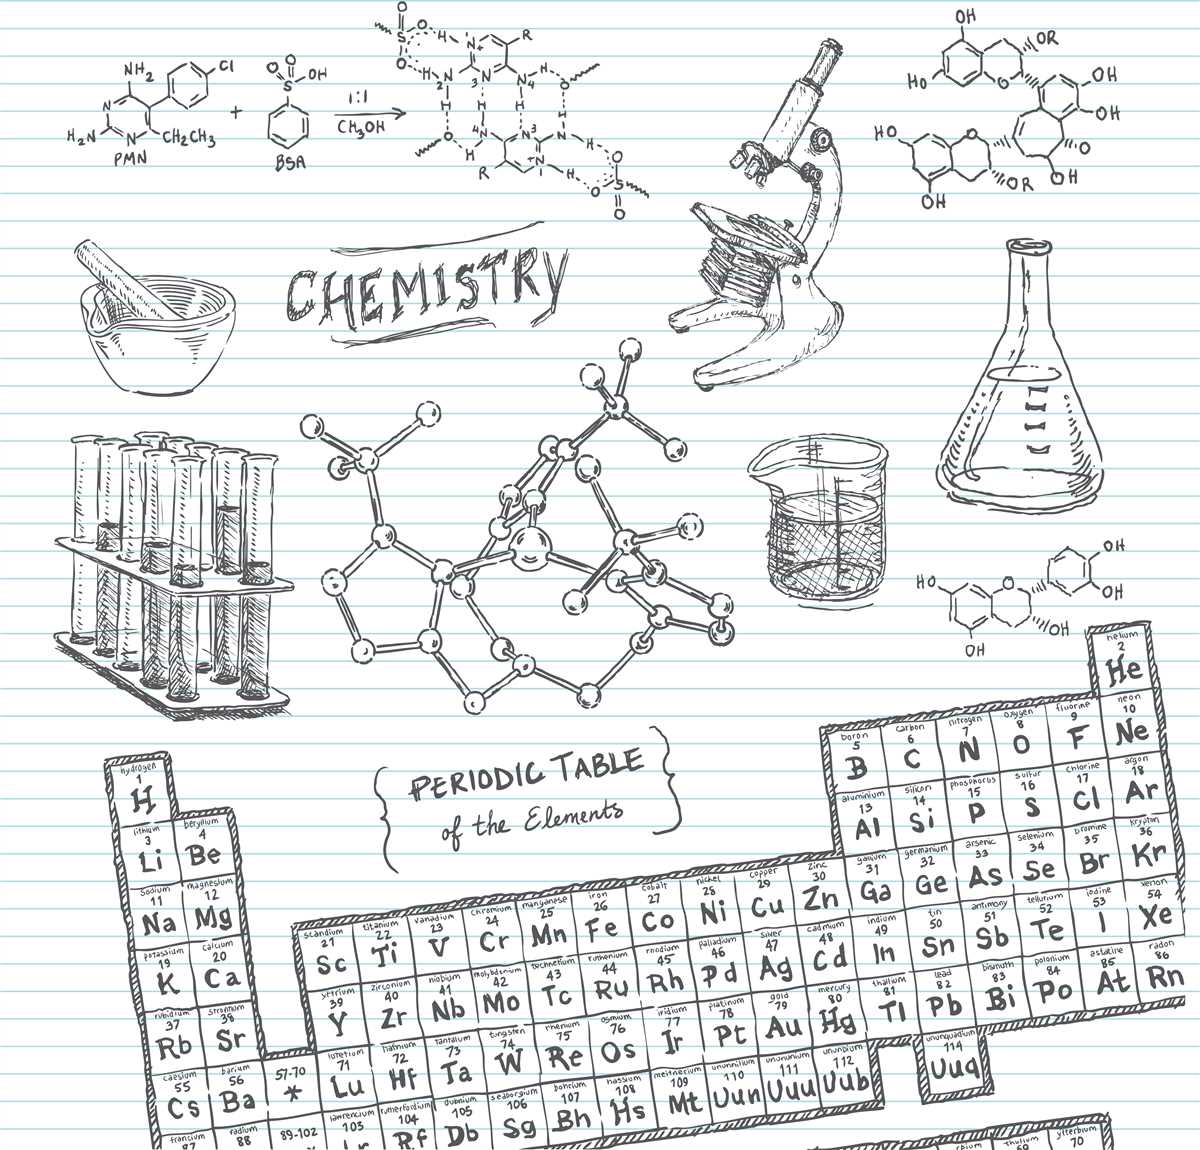 NH₂
Cl
N
N
H₂N
CH₂CH₃
PMN
+
O
O
S
OH
BSA
1:1
CH₃OH
O
S
O
O
H
N
R
H
N
2
3
N
N
4
H
O
H
H
H
O
H
4
N
N
3
N
2
H
R
N
H
O
S
O
O
OH
OR
HO
O
OH
OH
HO
O
O
OH
OR
OH
CHEMISTRY
OH
HO
O
OH
OH
OH
PERIODIC TABLE
of the Elements
helium
2
He
boron carbon nitrogen oxygen fluorine neon
5 6 7 8 9 10
B C N O F Ne
hydrogen
1
H
aluminium silicon phosphorus sulfur chlorine argon
13 14 15 16 17 18
Al Si P S Cl Ar
lithium beryllium
3 4
Li Be
scandium titanium vanadium chromium manganese iron cobalt nickel copper zinc gallium germanium arsenic selenium bromine krypton
21 22 23 24 25 26 27 28 29 30 31 32 33 34 35 36
Sc Ti V Cr Mn Fe Co Ni Cu Zn Ga Ge As Se Br Kr
sodium magnesium
11 12
Na Mg
yttrium zirconium niobium molybdenum technetium ruthenium rhodium palladium silver cadmium indium tin antimony tellurium iodine xenon
39 40 41 42 43 44 45 46 47 48 49 50 51 52 53 54
Y Zr Nb Mo Tc Ru Rh Pd Ag Cd In Sn Sb Te I Xe
potassium calcium
19 20
K Ca
lutetium hafnium tantalum tungsten rhenium osmium iridium platinum gold mercury thallium lead bismuth polonium astatine radon
71 72 73 74 75 76 77 78 79 80 81 82 83 84 85 86
Lu Hf Ta W Re Os Ir Pt Au Hg Tl Pb Bi Po At Rn
rubidium strontium
37 38
Rb Sr
caesium barium 57-70
55 56 *
Cs Ba
lawrencium rutherfordium dubnium seaborgium bohrium hassium meitnerium ununnilium unununium ununbium ununquadium
103 104 105 106 107 108 109 110 111 112 114
Lr Rf Db Sg Bh Hs Mt Uun Uuu Uub Uuq
francium radium 89-102
87 88
erbium thulium ytterbium
69 70